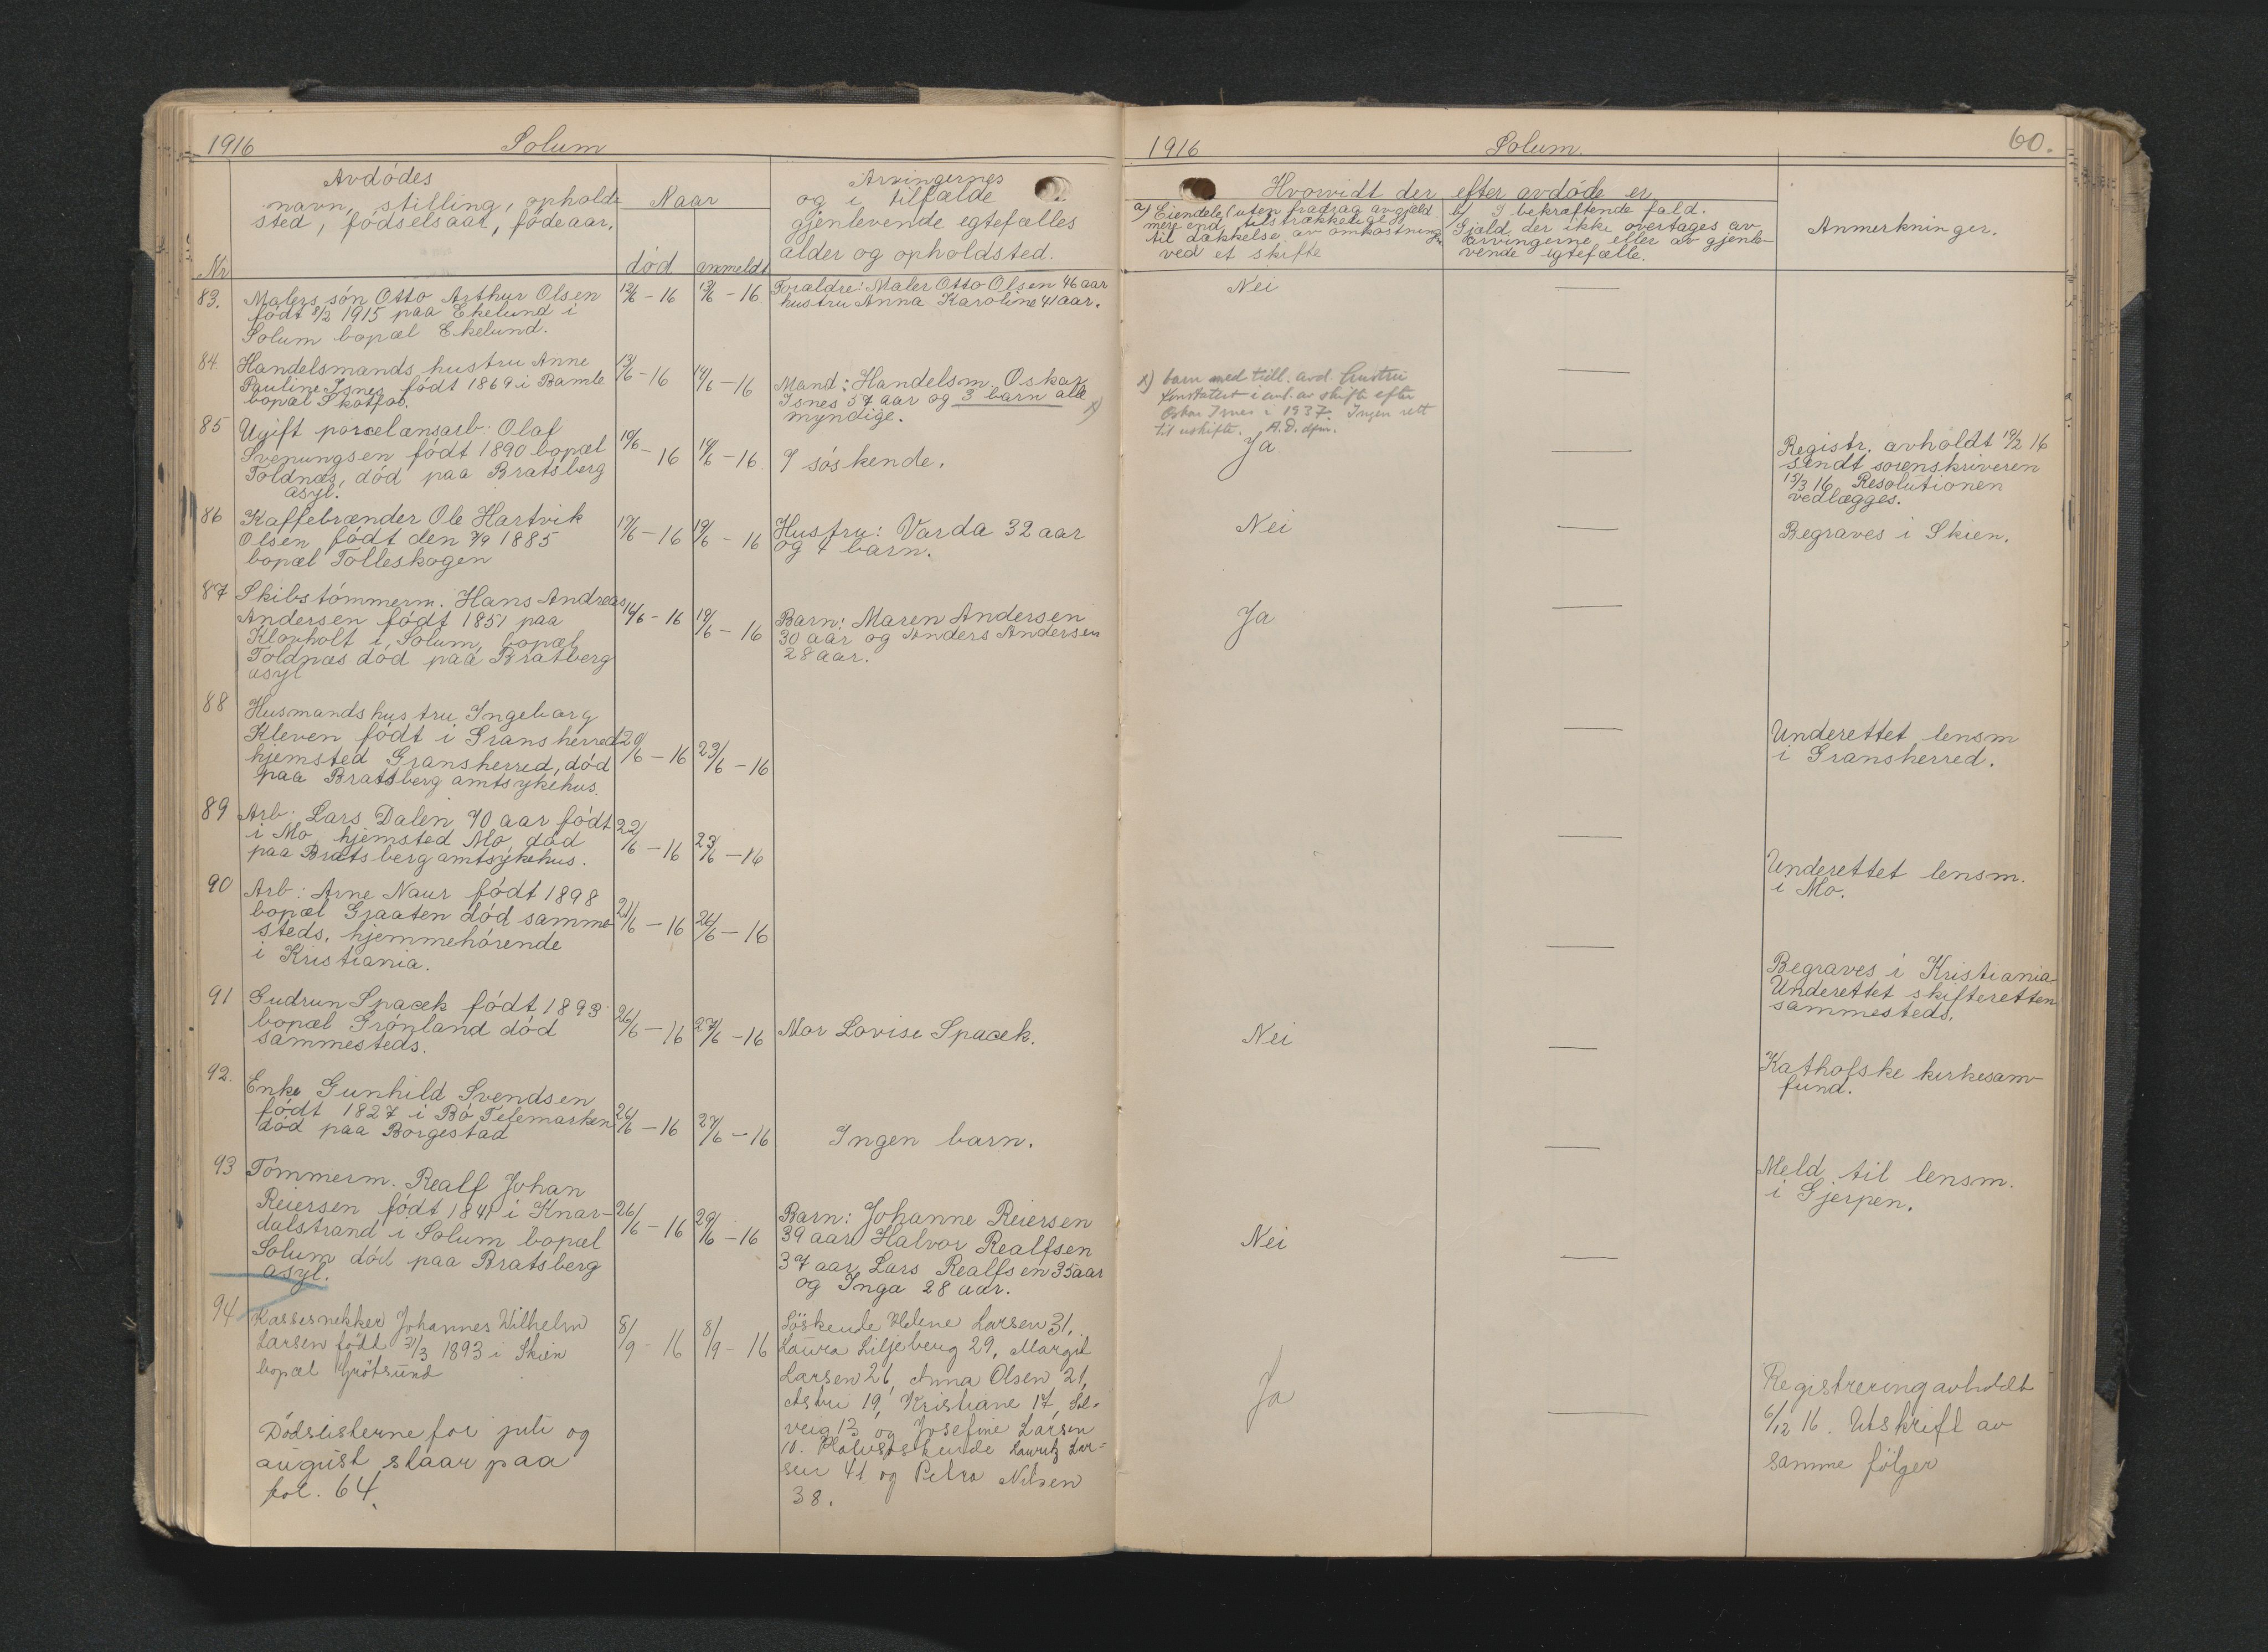 1916 Solum
Avdödes
navn, stilling, opholds
sted, födselsaar, födeaar.
Naar
Arvingernes
og i tilfælde
gjenlevende egtefælles
alder og opholdsted.
Nr
död anmeldt
83. Malers sön Otto Arthur Olsen 12/6 - 16 13/6 - 16. Forældre: Maler Otto Olsen 46 aar
födt 8/2 1915 paa Ekelund i hustru Anna Karoline 41 aar.
Solum bopæl Ekelund.
84. Handelsmands hustru Anne 13/6 - 16 14/6 - 16
Pauline Isnes födt 1869 i Bamle Mand: Handelsm. Oskar
bopæl Skotfos. Isnes 57 aar og 3 barn alle x)
myndige.
85 Ugift porcelænsarb: Olaf
Svenungsen födt 1890 bopæl 18/6 - 16 19/6 - 16. 9 söskende.
Toldnæs, död paa Bratsberg
asyl.
86 Kaffebrænder Ole Hartvik 17/6 - 16 19/6 - 16 Hustru: Varda 32 aar
Olsen födt den 7/9 1885 og 4 barn.
bopæl Tolleskogen
87 Skibstömmerm. Hans Andreas 16/6 - 16 19/6 - 16 Barn: Maren Andersen
Andersen födt 1851 paa 30 aar og Anders Andersen
Klovholt i Solum, bopæl 28 aar.
Toldnæs död paa Bratberg
asyl
88 Husmands hustru Ingeborg
Kleven födt i Gransherred 20/6 - 16 23/6 - 16
hjemsted Gransherred, död
paa Bratsberg amtsykehus.
89 Arb: Lars Dalen 70 aar födt 22/6 - 16 23/6 - 16
i Mo hjemsted Mo, död
paa Bratsberg amtsykehus.
90 Arb: Arne Naur födt 1898
bopæl Graaten död samme 21/6 - 16 26/6 - 16
steds, hjemmehörende
i Kristiania.
91 Gudrun Spacek födt 1893 26/6 - 16 27/6 - 16 Mor Lovise Spacek.
bopæl Grönland död
sammesteds.
92. Enke Gunhild Svendsen
födt 1827 i Bö Telemarken 26/6 - 16 27/6 - 16 Ingen barn.
död paa Borgestad
93 Tömmerm. Realf Johan
Reiersen födt 1841 i Knar- 26/6 - 16 29/6 - 16 Barn: Johanne Reiersen
dalstrand i Solum bopæl 39 aar Halvor Realfsen
Solum död paa Bratsberg 37 aar, Lars Realfsen 35 aar
asyl. og Inga 28 aar.
94 Kassesnekker Johannes Wilhelm 8/9 - 16 8/9 - 16 Söskende Helene Larsen 31,
Larsen födt 31/3 1893 i Skien Laura Liljeberg 29, Margit
bopæl Grötsund Larsen 26, Anna Olsen 21,
Astri 19, Kristiane 17, Sol-
veig 13 og Josefine Larsen
10. Halvsöskende Lauritz Lar-
sen 41 og Petra Nilsen
38.
Dödslisterne for juli og
august staar paa
fol. 64.
1916 Solum. 60.
Hvorvidt der efter avdöde er
a) Eiendele (uten fradrag av gjæld
mere end tilstrækkelige
til dækkelse av omkostningn
ved et skifte
b) I bekræftende fald.
Gjæld der ikke overtages av
arvingerne eller av gjenle-
vende egtefælle.
Anmerkninger.
Nei —
—
x) barn med tidl. avd. hustru
konstatert i anl. av skifte efter
Oskar Isnes i 1937. Ingen rett
til uskifte. A.D. dfm.
Ja — Registr. avholdt 19/2 16
sendt sorenskriveren
15/3 16 Resolutionen
vedlægges.
Nei — Begraves i Skien.
Ja —
— Underettet lensm
i Gransherred.
— Underettet lensm.
i Mo.
— Begraves i Kristiania
Underettet skifteretten
sammesteds.
Nei — Katholske kirkesam-
fund.
— Meld. til lensm.
i Gjerpen.
Nei —
Ja — Registrering avholdt
6/12 16. Utskrift av
samme fölger